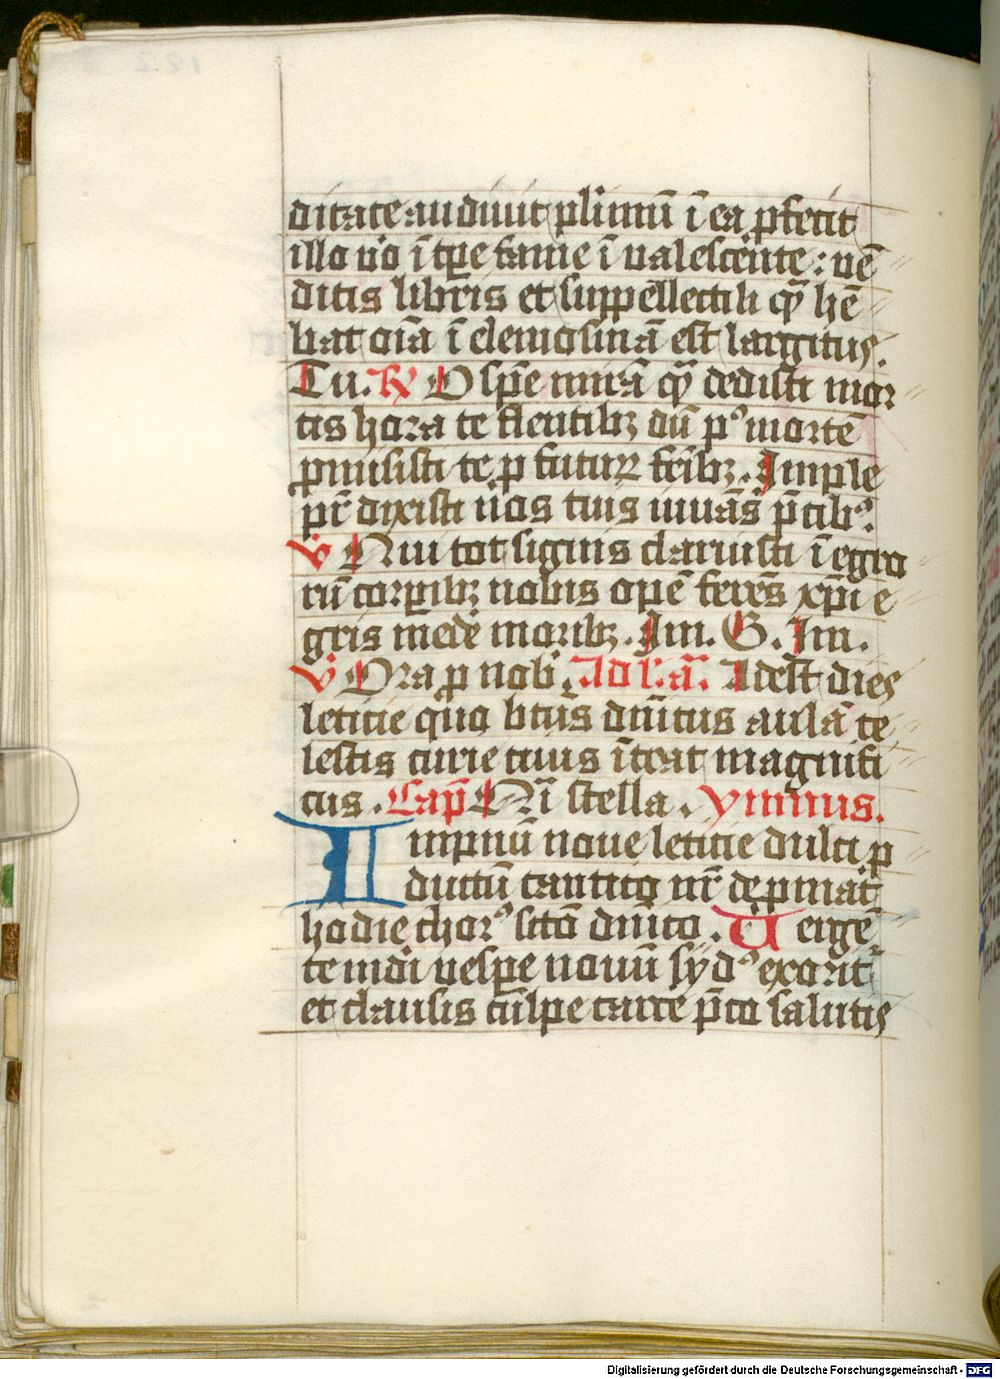 ditate audiuit plimū ī ea pfecit
illo uo ī tpe fame ī ualescente : uē
ditis libris et suppellectili q̄ hē
bat oīa ī elemosinā est largitus.
Tu. R̃ O spē mirā q̄ dedisti mor
tis hora te flentibꝫ dū pꝰ mortē
pmisisti te p futurꝝ frībꝫ. Imple
pr̄ dixisti nōs tuis iuuās p̄cibꝰ.
V Qui tot signis claruisti ī egro
rū corpibꝫ nobis opē ferēs xp̄i e
gris medē moribꝫ. Im. G. Im.
V Ora p nob. Ad l. a. Adest dies
leticie quo btūs dnicus aulā ce
lestis curie ciuis ītrat magnifi
cus. Cap̄ Qī stella. Ymnus.
Himpnū noue leticie dulci p
ductū cantico nr̄ depmat
hodie chorꝰ sc̄o dnico. Uergē
te mdi uespe nouū sydꝰ exorit
et clausis culpe carcē p̄co salutis
Digitalisierung gefördert durch die Deutsche Forschungsgemeinschaft - DFG